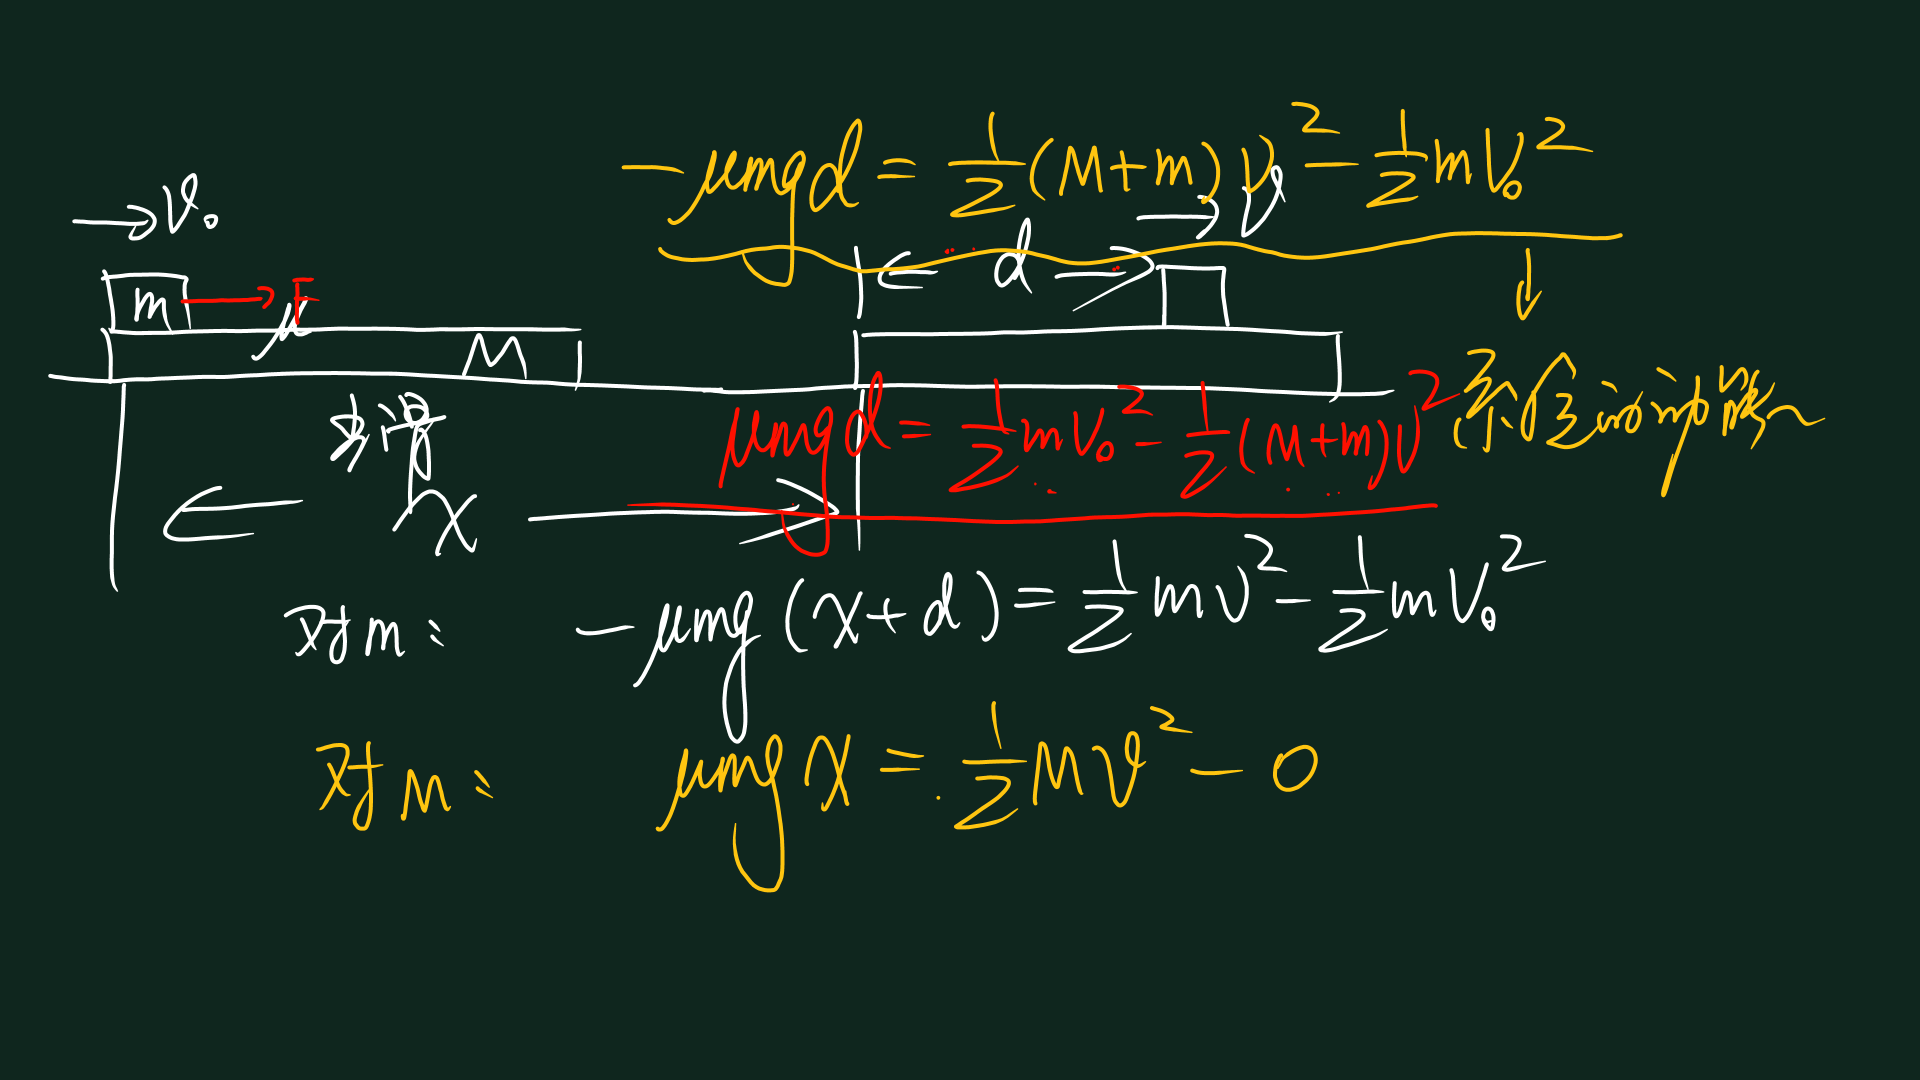 -μmgd = 1/2(M+m)v² - 1/2mv₀²
→v₀
d → v
m → F
μ
M
光滑
μmgd = 1/2mv₀² - 1/2(M+m)v²
系统动能
x
对m: -μmg(x+d) = 1/2mv² - 1/2mv₀²
对M: μmgx = 1/2Mv² - 0